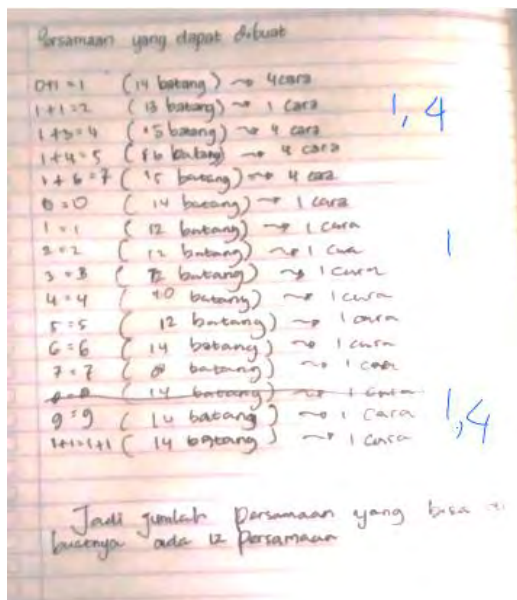 Persamaan yang dapat dibuat
0+1 = 1 (14 batang) ~> 4 cara
1+1=2 (13 batang) ~> 1 cara
1, 4
1+3=4 (15 batang) ~> 4 cara
1+4=5 (16 batang) ~> 4 cara
1+6=7 (15 batang) ~> 4 cara
0=0 (14 batang) ~> 1 cara
1=1 (12 batang) ~> 1 cara
2=2 (12 batang) ~> 1 cara
1
3=3 (12 batang) ~> 1 cara
4=4 (10 batang) ~> 1 cara
5=5 (12 batang) ~> 1 cara
6=6 (14 batang) ~> 1 cara
7=7 (batang) ~> 1 cara
(14 batang) ~> 1 cara
9=9 (14 batang) ~> 1 cara
1,4
1+1=1+1 (14 batang) ~> 1 cara
Jadi jumlah persamaan yang bisa
ada 12 persamaan